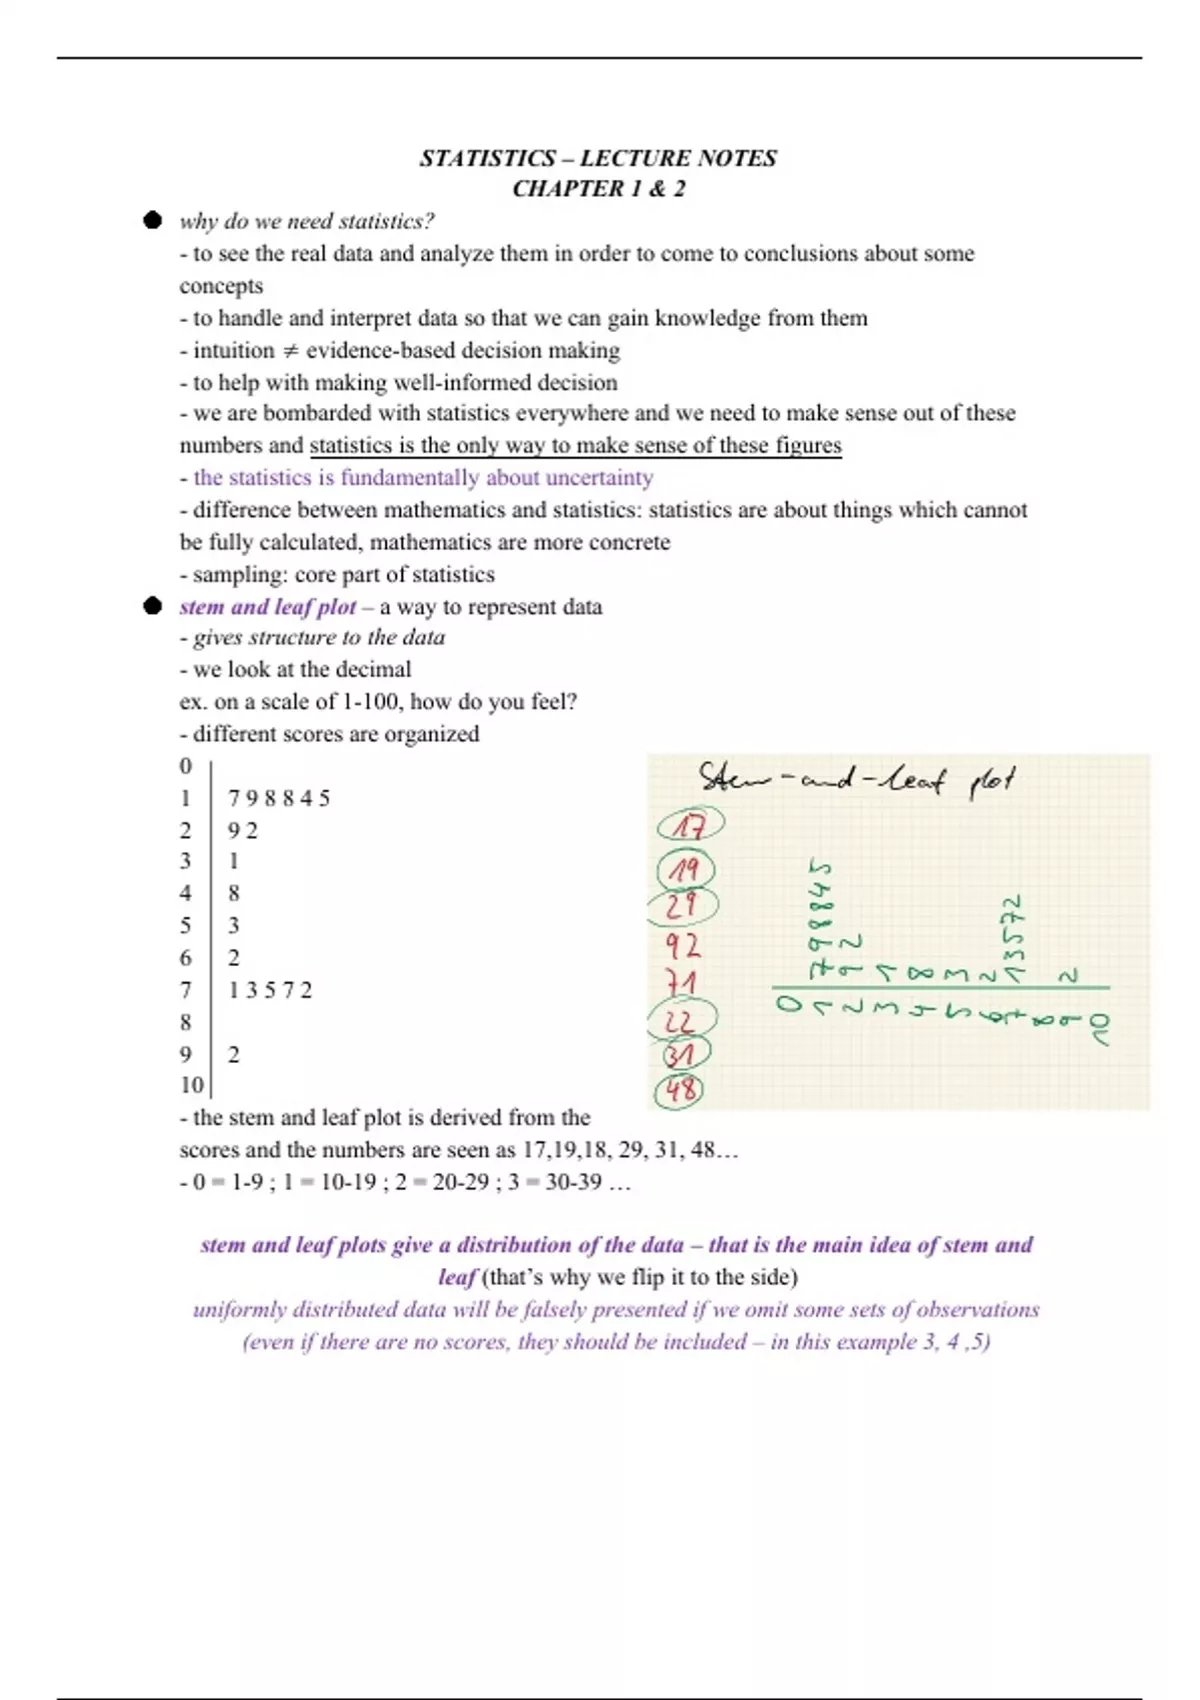 STATISTICS – LECTURE NOTES
CHAPTER 1 & 2
● why do we need statistics?
- to see the real data and analyze them in order to come to conclusions about some
concepts
- to handle and interpret data so that we can gain knowledge from them
- intuition ≠ evidence-based decision making
- to help with making well-informed decision
- we are bombarded with statistics everywhere and we need to make sense out of these
numbers and statistics is the only way to make sense of these figures
- the statistics is fundamentally about uncertainty
- difference between mathematics and statistics: statistics are about things which cannot
be fully calculated, mathematics are more concrete
- sampling: core part of statistics
● stem and leaf plot – a way to represent data
- gives structure to the data
- we look at the decimal
ex. on a scale of 1-100, how do you feel?
- different scores are organized
0
1 7 9 8 8 4 5
2 9 2
3 1
4 8
5 3
6 2
7 1 3 5 7 2
8
9 2
10
Stem-and-leaf plot
17
19
29
92
71
22
31
48
7 9 8 8 4 5
9 2
1
8
3
2
1 3 5 7 2
2
0 1 2 3 4 5 6 7 8 9 10
- the stem and leaf plot is derived from the
scores and the numbers are seen as 17,19,18, 29, 31, 48…
- 0 = 1-9 ; 1 = 10-19 ; 2 = 20-29 ; 3 = 30-39 …
stem and leaf plots give a distribution of the data – that is the main idea of stem and
leaf (that’s why we flip it to the side)
uniformly distributed data will be falsely presented if we omit some sets of observations
(even if there are no scores, they should be included – in this example 3, 4 ,5)